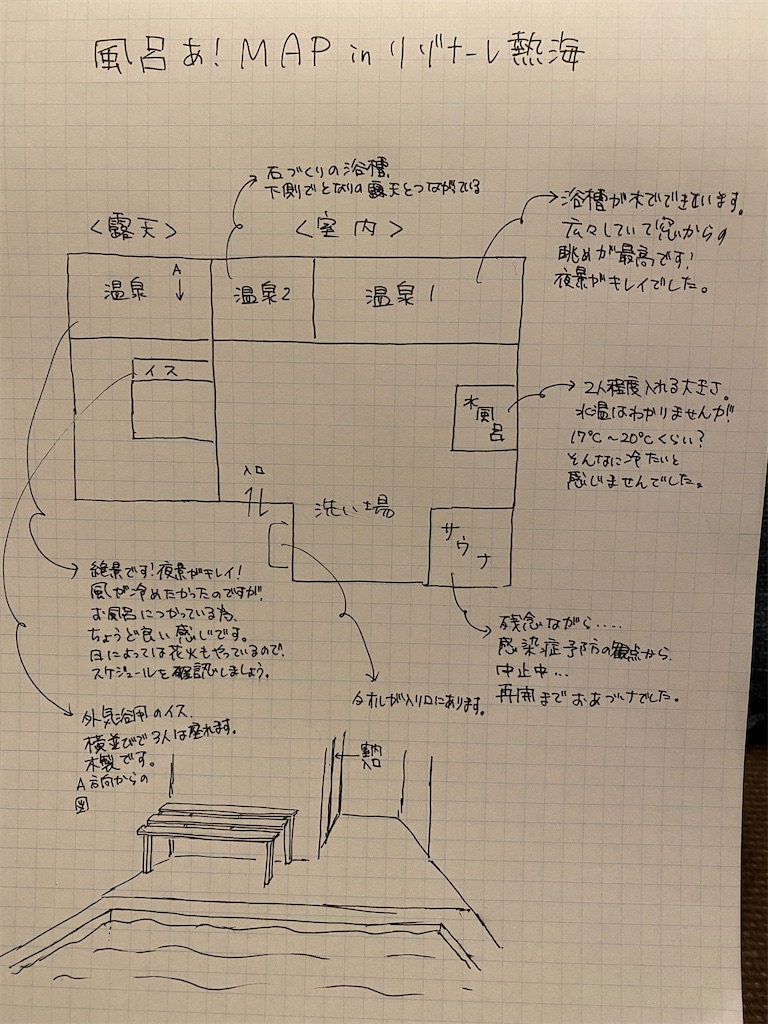 風呂あ! MAP in リゾナーレ熱海
石づくりの浴槽。
下側でとなりの露天とつながっている
<露天>
<室内>
浴槽が木でできています。
広々していて窓からの
眺めが最高です!
夜景がキレイでした。
温泉
A
↓
温泉2
温泉1
イス
水風呂
2人程度入れる大きさ。
水温はわかりませんが
17℃〜20℃くらい?
そんなに冷たいと
感じませんでした。
入口
洗い場
サウナ
絶景です!夜景がキレイ!
風が冷めたかったのですが、
お風呂につかっている為、
ちょうど良い感じです。
日によっては花火もやっているので、
スケジュールを確認しましょう。
残念ながら....
感染症予防の観点から、
中止中...
再開までおあづけでした。
タオルが入り口にあります。
外気浴用のイス。
横並びで3人は座れます。
木製です。
A方向からの
図
室内
入口